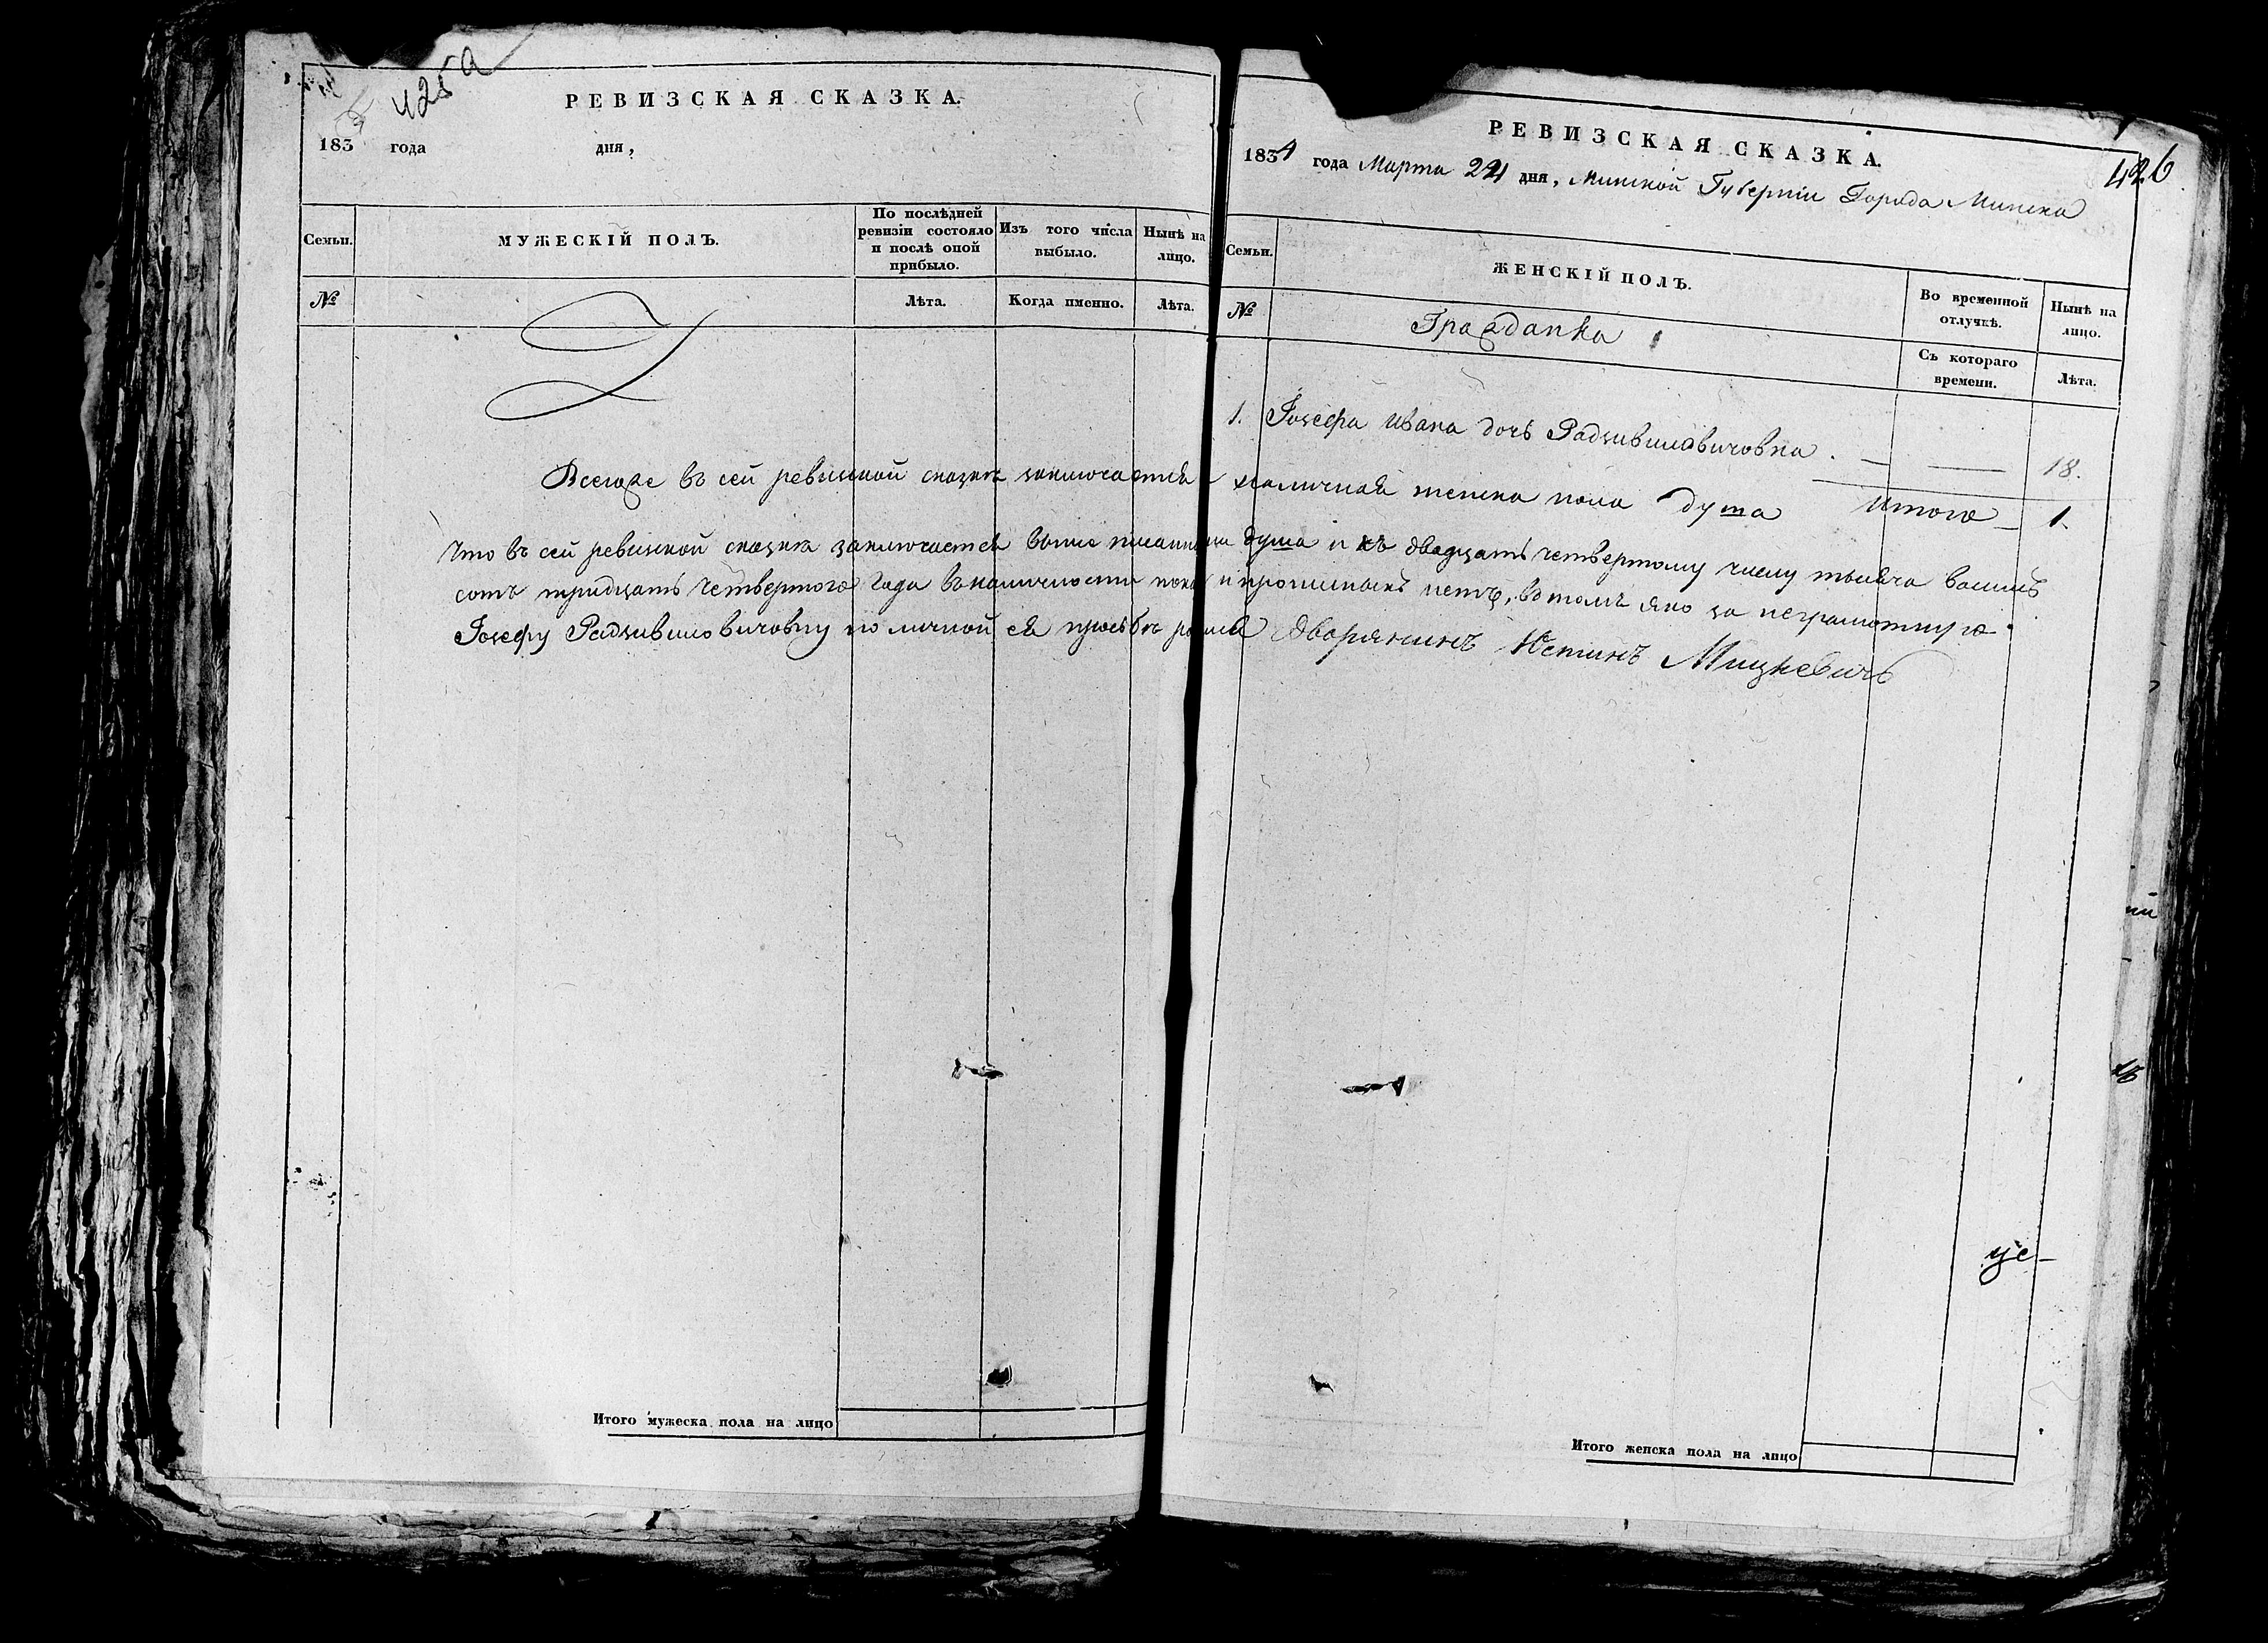 425а
РЕВИЗСКАЯ СКАЗКА.
183 года дня,
Семьи. МУЖЕСКІЙ ПОЛЪ. По послѣдней ревизіи состояло и послѣ оной прибыло. Изъ того числа выбыло. Нынѣ на лицо.
№ Лѣта. Когда именно. Лѣта.
426
РЕВИЗСКАЯ СКАЗКА.
1834 года Марта 24 дня, Минской Губерніи Города Минска
Семьи. ЖЕНСКІЙ ПОЛЪ. Во временной отлучкѣ. Нынѣ на лицо.
№ Съ котораго времени. Лѣта.
Гражданка
1. Іозефа Ивана дочь Радзивиловичовна. — — 18.
Итого — 1.
Всегоже въ сей ревизской сказкѣ заключается наличная женска пола душа
Что въ сей ревизской сказкѣ заключается выше писанная душа и къ двадцать четвертому числу тысяча восимь
сотъ тридцать четвертого года въ наличности и прописныхъ нетъ, въ томъ яко за неграмотную
Іозефу Радзивиловичовну по личной ея просьбѣ Дворянинъ Юстинъ Мицкевичъ
це-
Итого мужеска пола на лицо
Итого женска пола на лицо